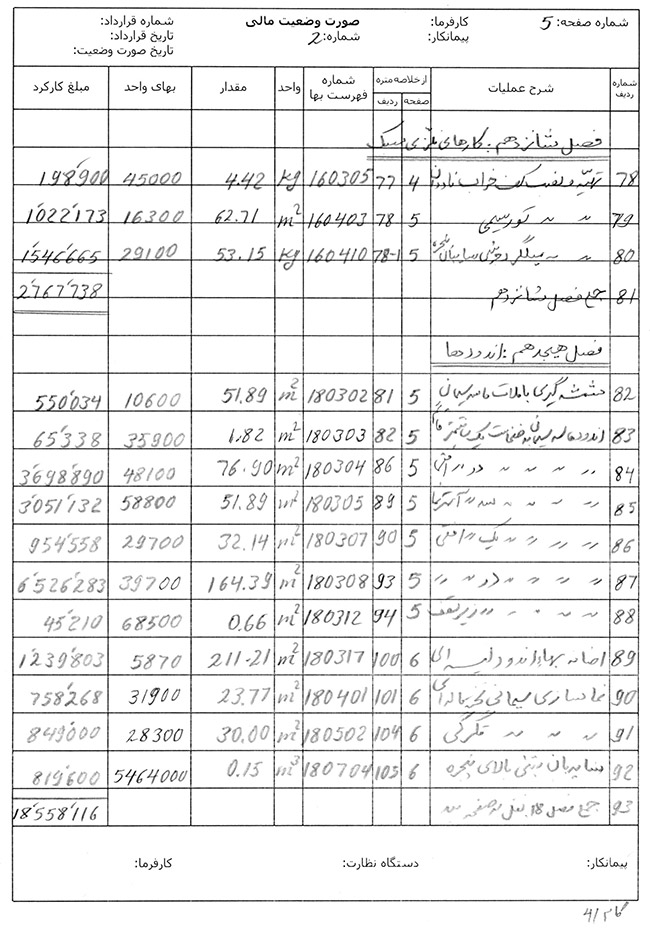 شماره صفحه: 5 کارفرما: صورت وضعیت مالی شماره قرارداد:
پیمانکار: شماره: 2 تاریخ قرارداد:
تاریخ صورت وضعیت:
شماره ردیف شرح عملیات از خلاصه متره صفحه ردیف شماره فهرست بها واحد مقدار بهای واحد مبلغ کارکرد
فصل شانزدهم: کارهای فلزی سبک
78 تهیه و نصب کف خواب ناودان 4 77 160305 kg 4.42 45000 198'900
79 〃 〃 تورسیمی 5 78 160403 m² 62.71 16300 1'022'173
80 〃 〃 میلگرد 5 78-1 160410 kg 53.15 29100 1'546'665
81 جمع فصل شانزدهم 2'767'738
فصل هیجدهم: اندودها
82 شمشه گیری با ملات ماسه سیمان 5 81 180302 m² 51.89 10600 550'034
83 اندود ماسه سیمان به ضخامت یک سانتیمتر 5 82 180303 m² 1.82 35900 65'338
84 〃 〃 〃 〃 دو 〃 افقی 5 86 180304 m² 76.90 48100 3'698'890
85 〃 〃 〃 〃 5 89 180305 m² 51.89 58800 3'051'132
86 〃 〃 〃 〃 یک 〃 افقی 5 90 180307 m² 32.14 29700 954'558
87 〃 〃 〃 〃 دو 〃 〃 5 93 180308 m² 164.39 39700 6'526'283
88 〃 〃 〃 〃 زیر سقف 5 94 180312 m² 0.66 68500 45'210
89 اضافه بها اندود لیسه ای 6 100 180317 m² 211.21 5870 1'239'803
90 نماسازی سیمانی تخته ماله ای 6 101 180401 m² 23.77 31900 758'268
91 〃 〃 〃 تگرگی 6 104 180502 m² 30.00 28300 849'000
92 سایه بان بتنی بالای پنجره 6 105 180704 m³ 0.15 5464000 819'600
93 جمع فصل 18 نقل به صفحه بعد 18'558'116
پیمانکار: دستگاه نظارت: کارفرما:
گام/4